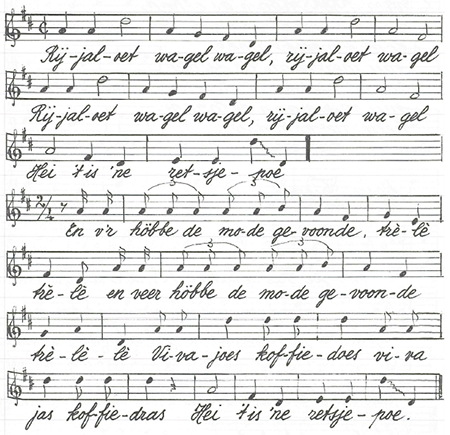 Rij-jal-oet wa-gel wa-gel, rij-jal-oet wa-gel
Rij-jal-oet wa-gel wa-gel, rij-jal-oet wa-gel
Hei 't is 'ne ret-sje-poe
En v'r höbbe de mo-de ge-voonde, trè-lè
trè-lè en veer höbbe de mo-de ge-voon-de
trè-lè-lè Vi-va-joes kof-fie-does vi-va
jas kof-fie-dras Hei 't is 'ne retsje-poe.